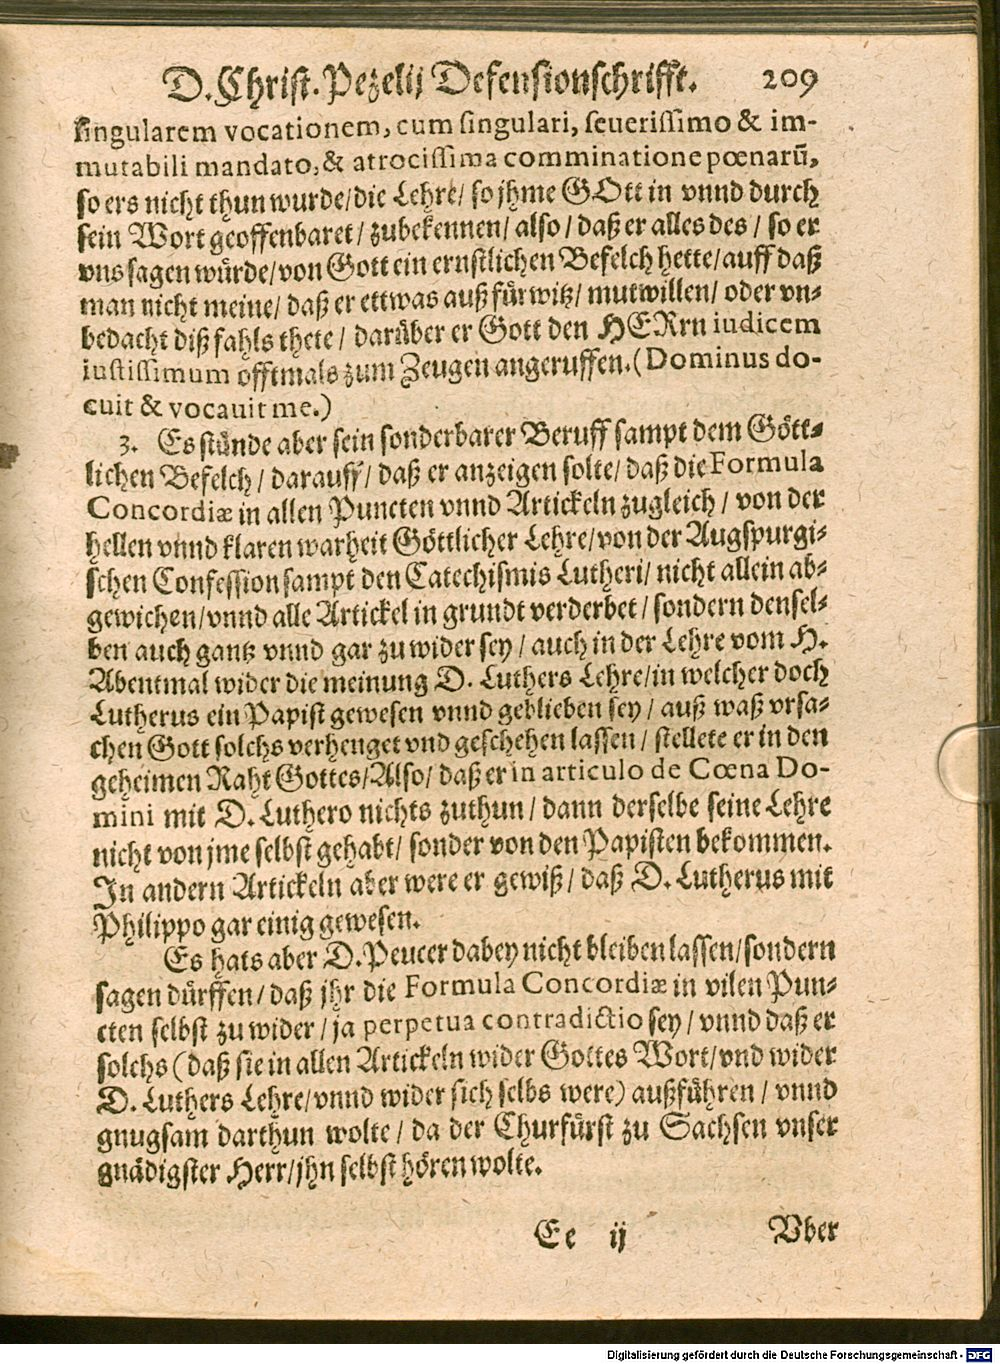 D. Christ. Pezelij Defensionschrifft. 209
singularem vocationem, cum singulari, seuerissimo & im-
mutabili mandato, & atrocissima comminatione pœnarũ,
so ers nicht thun wurde/ die Lehre/ so jhme GOtt in vnnd durch
sein Wort geoffenbaret/ zubekennen/ also/ daß er alles des/ so er
vns sagen würde/ von Gott ein ernstlichen Befelch hette/ auff daß
man nicht meine/ daß er ettwas auß fürwitz/ mutwillen/ oder vn-
bedacht dißfahls thete/ darüber er Gott den HERrn iudicem
iustissimum offtmals zum Zeugen angeruffen. (Dominus do-
cuit & vocauit me.)
3. Es stünde aber sein sonderbarer Beruff sampt dem Gött-
lichen Befelch/ darauff/ daß er anzeigen solte/ daß die Formula
Concordiæ in allen Puncten vnnd Artickeln zugleich/ von der
hellen vnnd klaren warheit Göttlicher Lehre/ von der Augspurgi-
schen Confession sampt den Catechismis Lutheri/ nicht allein ab-
gewichen/ vnnd alle Artickel in grundt verderbet/ sondern densel-
ben auch gantz vnnd gar zu wider sey/ auch in der Lehre vom H.
Abentmal wider die meinung D. Luthers Lehre/ in welcher doch
Lutherus ein Papist gewesen vnnd geblieben sey/ auß waß vrsa-
chen Gott solchs verhenget vnd geschehen lassen/ stellete er in den
geheimen Raht Gottes/ Also/ daß er in articulo de Cœna Do-
mini mit D. Luthero nichts zuthun/ dann derselbe seine Lehre
nicht von jme selbst gehabt/ sonder von den Papisten bekommen.
In andern Artickeln aber were er gewiß/ daß D. Lutherus mit
Philippo gar einig gewesen.
Es hats aber D. Peucer dabey nicht bleiben lassen/ sondern
sagen dürffen/ daß jhr die Formula Concordiæ in vilen Pun-
cten selbst zu wider/ ja perpetua contradictio sey/ vnnd daß er
solchs (daß sie in allen Artickeln wider Gottes Wort/ vnd wider
D. Luthers Lehre/ vnnd wider sich selbs were) außführen/ vnnd
gnugsam darthun wolte/ da der Churfürst zu Sachsen vnser
gnädigster Herr/ jhn selbst hören wolte.
Ee ij Vber
Digitalisierung gefördert durch die Deutsche Forschungsgemeinschaft - DFG